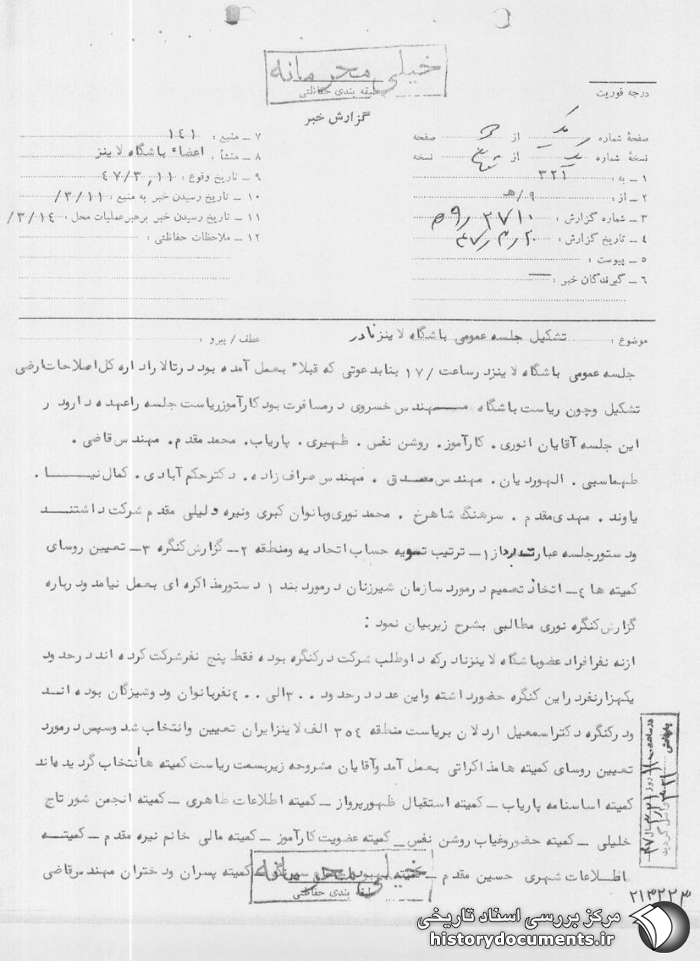 خیلی محرمانه
طبقه بندی حفاظتی
گزارش خبر
درجه فوریت
صفحهٔ شماره یک از 3 صفحه
نسخهٔ شماره از نسخه
۱ – به : ۳۲۱
۲ – از : ۹/ﻫ
۳ – شماره گزارش : ۲۷۱۰/۵۹
۴ – تاریخ گزارش : ۴۷/۳/۲۰
۵ – پیوست :
۶ – گیرندگان خبر :
۷ – منبع : ۱۴۱
۸ – منشأ : اعضاء باشگاه لاینز
۹ – تاریخ وقوع : ۴۷/۳/۱۱
۱۰ – تاریخ رسیدن خبر به منبع : ۳/۱۱/
۱۱ – تاریخ رسیدن خبر برهبر عملیات محل : ۳/۱۴/
۱۲ – ملاحظات حفاظتی :
موضوع : تشکیل جلسه عمومی باشگاه لاینز نادر
عطف / پیرو :
جلسه عمومی باشگاه لاینز در ساعت /۱۷ بنابدعوتی که قبلا" بعمل آمده بود در تالار اداره کل اصلاحات ارضی
تشکیل و چون ریاست باشگاه مهندس خسروی در مسافرت بود کارآموز ریاست جلسه را عهده دار بود ر
این جلسه آقایان انوری . کارآموز . روشن نفس . ظهیری . پاریاب . محمد مقدم . مهندس قاضی .
طهماسبی . الهوردیان . مهندس مصدق . مهندس صراف زاده . دکتر حکم آبادی . کمال نیا .
یاوند . مهدی مقدم . سرهنگ شاهرخ . محمد نوری و بانوان کبری و نیره و لیلی مقدم شرکت داشتند
و دستور جلسه عبارتند از ۱– ترتیب تسویه حساب اتحادیه و منطقه ۲– گزارش کنگره ۳– تعیین روسای
کمیته ها ۴– اتخاذ تصمیم در مورد سازمان شیر زنان در مورد بند ۱ دستور مذاکره ای بعمل نیامد و درباره
گزارش کنگره نوری مطالبی بشرح زیر بیان نمود :
از نه نفر افراد عضو باشگاه لاینز نادر که داوطلب شرکت در کنگره بوده فقط پنج نفر شرکت کرده اند در حدود
یکهزار نفر در این کنگره حضور داشته و این عدد در حدود ۳۰۰ الی ۴۰۰ نفر بانوان و دوشیزگان بوده اند
و در کنگره دکتر اسمعیل اردلان بریاست منطقه ۳۵۴ الف لاینز ایران تعیین و انتخاب شد و سپس در مورد
تعیین روسای کمیته ها مذاکراتی بعمل آمد و آقایان مشروحه زیر بسمت ریاست کمیته ها انتخاب گردیدند
کمیته اساسنامه پاریاب – کمیته استقبال ظهور پرواز – کمیته اطلاعات طاهری – کمیته انجمن شور تاج
خلیلی – کمیته حضور و غیاب روشن نفس – کمیته عضویت کارآموز – کمیته مالی خانم نیره مقدم – کمیته
اطلاعات شهری حسین مقدم – کمیته کمیته پسران و دختران مهندس قاضی
خیلی محرمانه
طبقه بندی حفاظتی
بایگانی
۲۱۳۲۲۳
مرکز بررسی اسناد تاریخی
historydocuments.ir